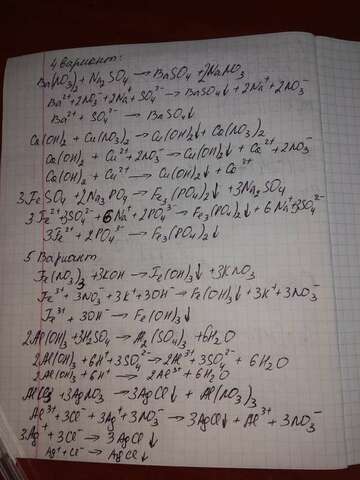 4 вариант:
Ba(NO₃)₂ + Na₂SO₄ → BaSO₄ + 2NaNO₃
Ba²⁺ + 2NO₃⁻ + 2Na⁺ + SO₄²⁻ → BaSO₄↓ + 2Na⁺ + 2NO₃⁻
Ba²⁺ + SO₄²⁻ → BaSO₄↓
Ca(OH)₂ + Cu(NO₃)₂ → Cu(OH)₂↓ + Ca(NO₃)₂
Ca(OH)₂ + Cu²⁺ + 2NO₃⁻ → Cu(OH)₂↓ + Ca²⁺ + 2NO₃⁻
Ca(OH)₂ + Cu²⁺ → Cu(OH)₂↓ + Ca²⁺
3FeSO₄ + 2Na₃PO₄ → Fe₃(PO₄)₂↓ + 3Na₂SO₄
3Fe²⁺ + 3SO₄²⁻ + 6Na⁺ + 2PO₄³⁻ → Fe₃(PO₄)₂↓ + 6Na⁺ + 3SO₄²⁻
3Fe²⁺ + 2PO₄³⁻ → Fe₃(PO₄)₂↓
5 Вариант
Fe(NO₃)₃ + 3KOH → Fe(OH)₃↓ + 3KNO₃
Fe³⁺ + 3NO₃⁻ + 3K⁺ + 3OH⁻ → Fe(OH)₃↓ + 3K⁺ + 3NO₃⁻
Fe³⁺ + 3OH⁻ → Fe(OH)₃↓
2Al(OH)₃ + 3H₂SO₄ → Al₂(SO₄)₃ + 6H₂O
2Al(OH)₃ + 6H⁺ + 3SO₄²⁻ → 2Al³⁺ + 3SO₄²⁻ + 6H₂O
2Al(OH)₃ + 6H⁺ → 2Al³⁺ + 6H₂O
AlCl₃ + 3AgNO₃ → 3AgCl↓ + Al(NO₃)₃
Al³⁺ + 3Cl⁻ + 3Ag⁺ + 3NO₃⁻ → 3AgCl↓ + Al³⁺ + 3NO₃⁻
3Ag⁺ + 3Cl⁻ → 3AgCl↓
Ag⁺ + Cl⁻ → AgCl↓